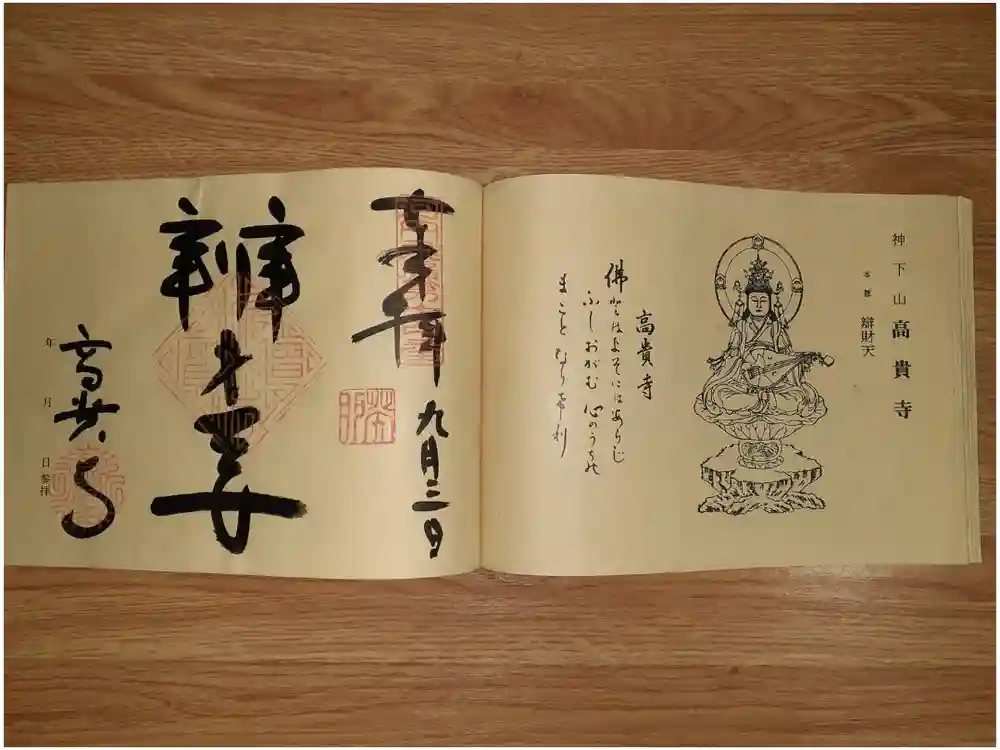 神下山 高貴寺
本尊 辯財天
高貴寺
佛とはよそにはあらじ
ふしおがむ心のうちの
まことなり希利
九月三日
辨才
高貴寺
年 月 日参拝